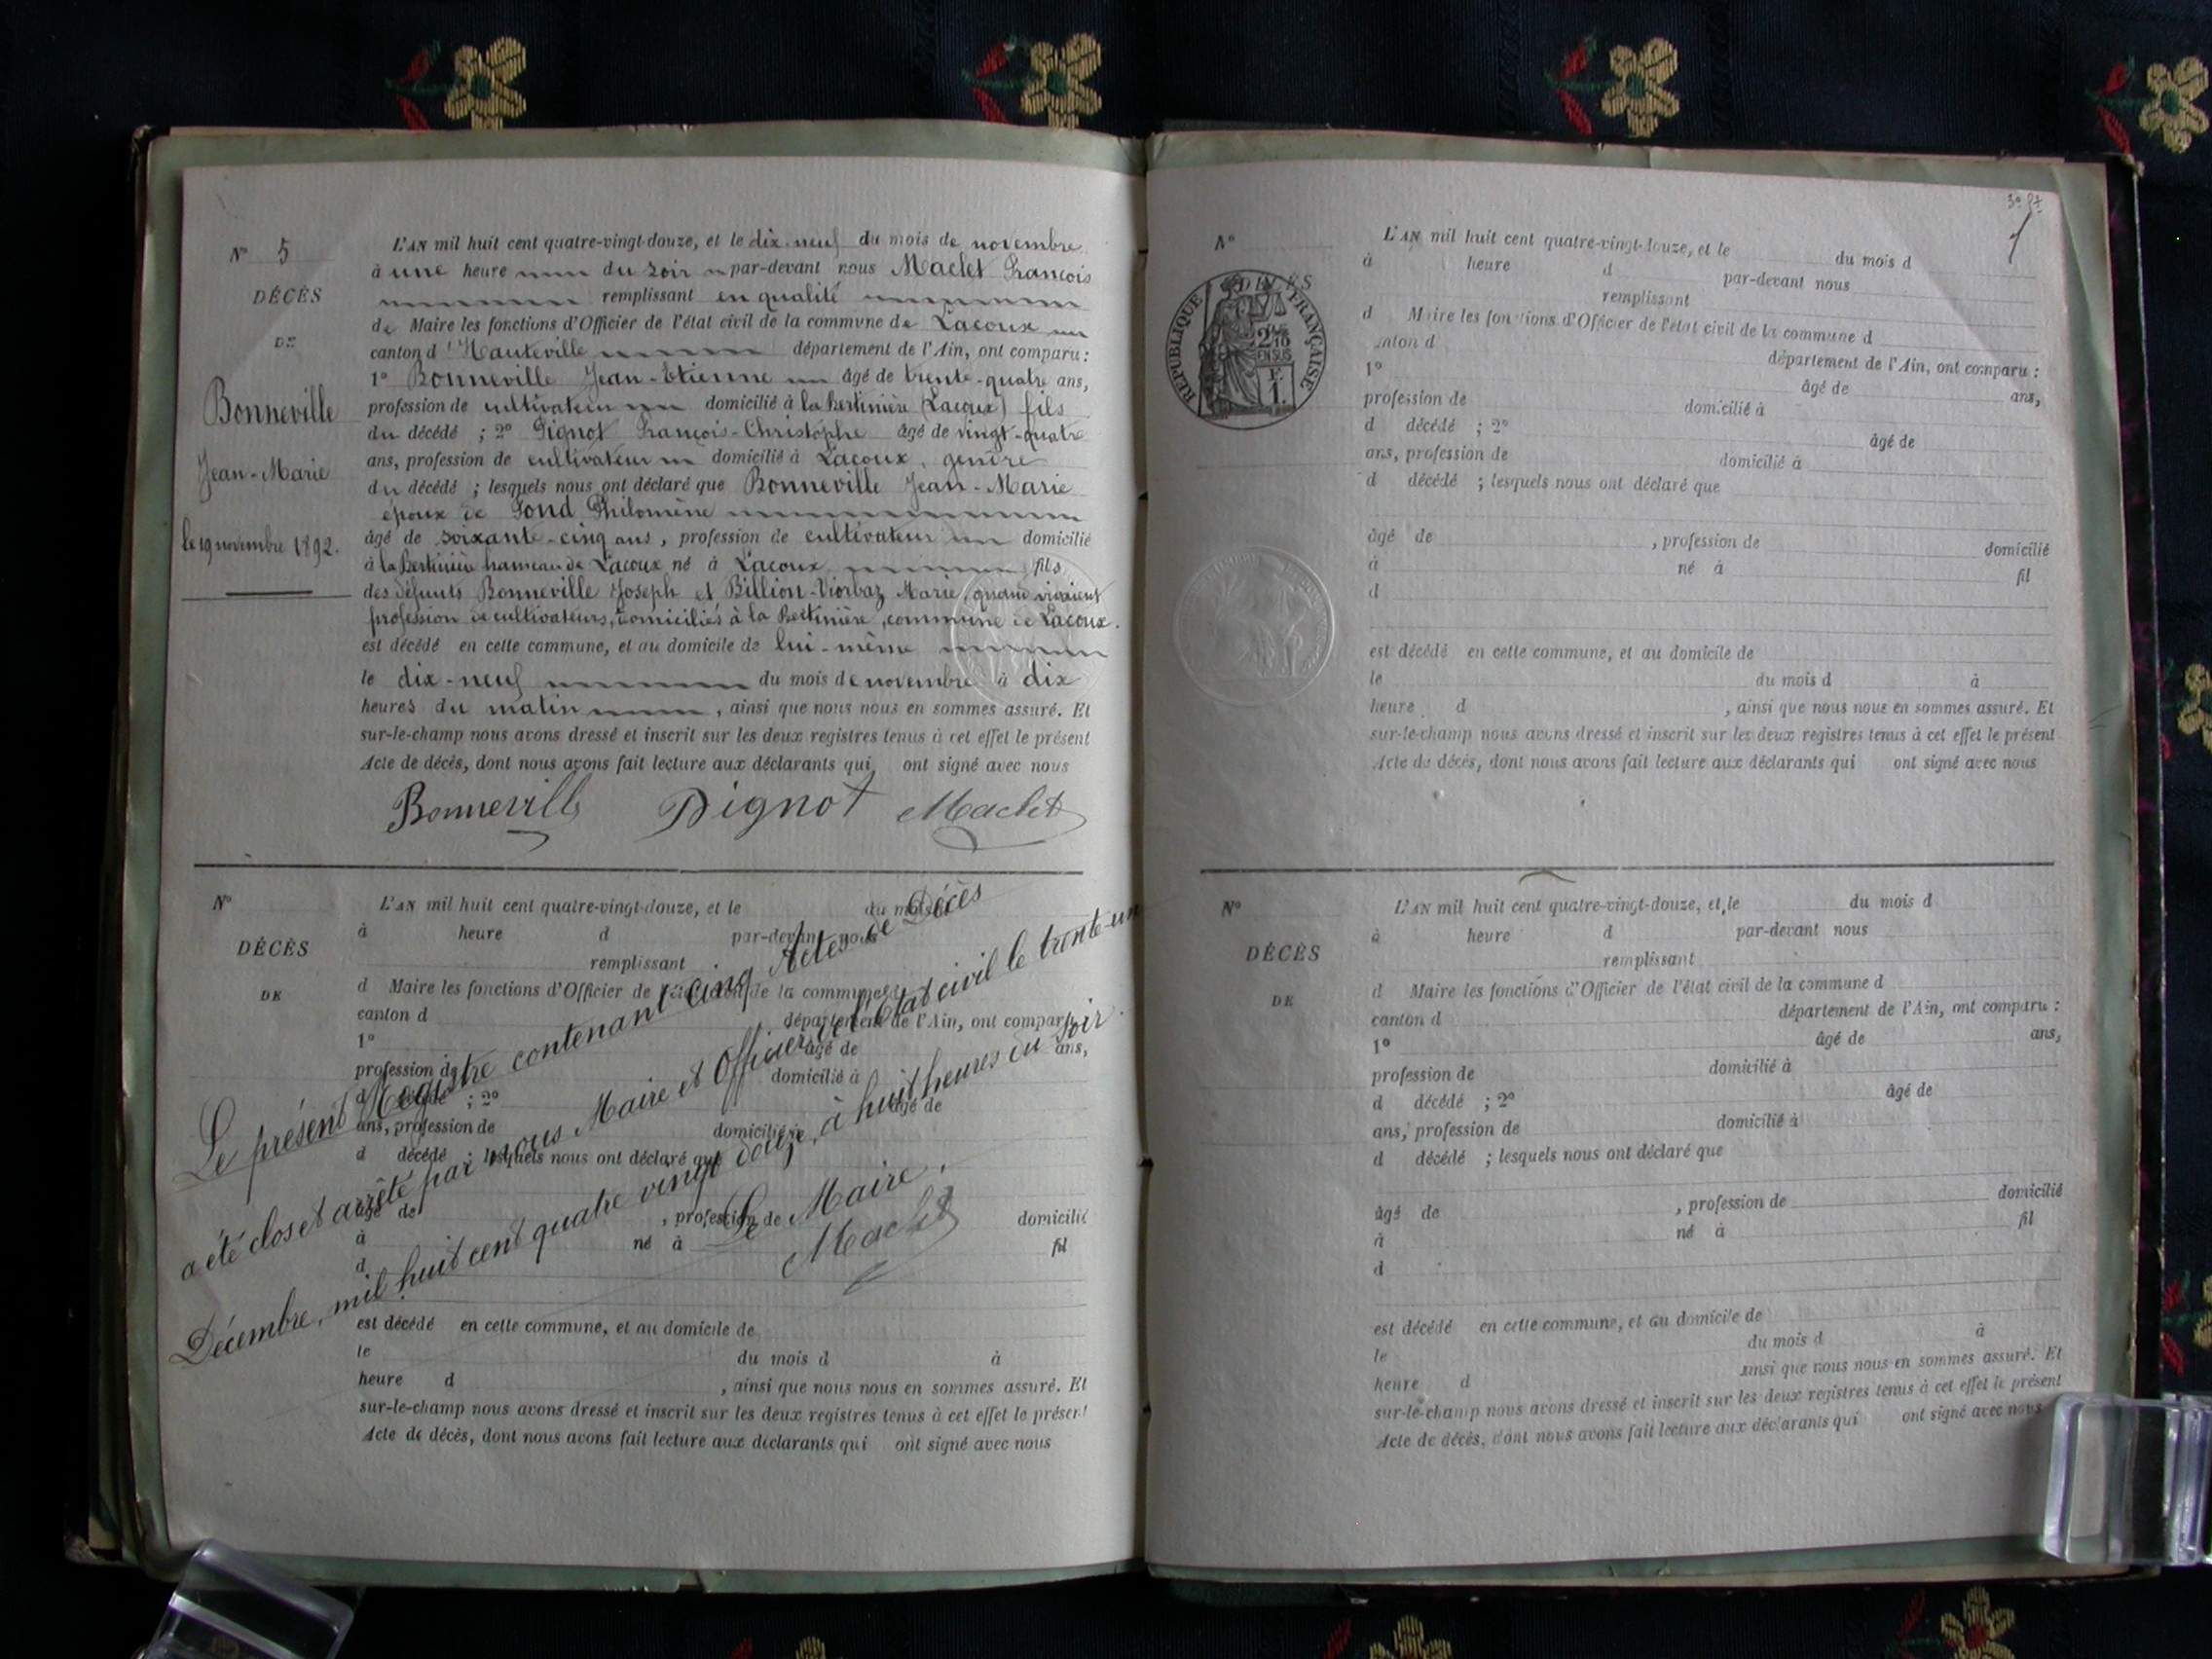 N° 5
DÉCÈS
DE
Bonneville
Jean-Marie
le 19 novembre 1892.
L'AN mil huit cent quatre-vingt-douze, et le dix-neuf du mois de novembre
à une heure du soir par-devant nous Maclet François
remplissant en qualité
de Maire les fonctions d'Officier de l'état civil de la commune de Lacoux
canton d'Hauteville département de l'Ain, ont comparu :
1° Bonneville Jean-Etienne âgé de trente-quatre ans,
profession de cultivateur domicilié à la Bertinière (Lacoux) fils
du décédé ; 2° Pignot François-Christophe âgé de vingt-quatre
ans, profession de cultivateur domicilié à Lacoux, gendre
du décédé ; lesquels nous ont déclaré que Bonneville Jean-Marie
époux de Fond Philomène
âgé de soixante-cinq ans, profession de cultivateur domicilié
à la Bertinière hameau de Lacoux né à Lacoux fils
des défunts Bonneville Joseph et Billion-Viorbaz Marie, quand vivaient
profession de cultivateurs, domiciliés à la Bertinière, commune de Lacoux.
est décédé en cette commune, et au domicile de lui-même
le dix-neuf du mois de novembre à dix
heures du matin, ainsi que nous nous en sommes assuré. Et
sur-le-champ nous avons dressé et inscrit sur les deux registres tenus à cet effet le présent
Acte de décès, dont nous avons fait lecture aux déclarants qui ont signé avec nous
Bonneville Pignot Maclet
N°
DÉCÈS
DE
L'AN mil huit cent quatre-vingt-douze, et le du mois d
à heure d par-devant nous
remplissant
d Maire les fonctions d'Officier de l'état civil de la commune d
canton d département de l'Ain, ont comparu :
1° âgé de ans,
profession de domicilié à
d décédé ; 2° âgé de
ans, profession de domicilié à
d décédé ; lesquels nous ont déclaré que
âgé de , profession de domicilié
à né à fil
d
est décédé en cette commune, et au domicile de
le du mois d à
heure d , ainsi que nous nous en sommes assuré. Et
sur-le-champ nous avons dressé et inscrit sur les deux registres tenus à cet effet le présent
Acte de décès, dont nous avons fait lecture aux déclarants qui ont signé avec nous
Le présent Registre contenant cinq Actes de Décès
a été clos et arrêté par nous Maire et Officier de l'Etat civil le trente-un
Décembre, mil huit cent quatre vingt douze, à huit heures du soir.
Le Maire.
Maclet
N°
DÉCÈS
RÉPUBLIQUE FRANÇAISE
2/10
EN SUS
F.
1.
L'AN mil huit cent quatre-vingt-douze, et le du mois d
à heure d par-devant nous
remplissant
d Maire les fonctions d'Officier de l'état civil de la commune d
canton d département de l'Ain, ont comparu :
1° âgé de ans,
profession de domicilié à
d décédé ; 2° âgé de
ans, profession de domicilié à
d décédé ; lesquels nous ont déclaré que
âgé de , profession de domicilié
à né à fil
d
est décédé en cette commune, et au domicile de
le du mois d à
heure d , ainsi que nous nous en sommes assuré. Et
sur-le-champ nous avons dressé et inscrit sur les deux registres tenus à cet effet le présent
Acte de décès, dont nous avons fait lecture aux déclarants qui ont signé avec nous
N°
DÉCÈS
DE
L'AN mil huit cent quatre-vingt-douze, et le du mois d
à heure d par-devant nous
remplissant
d Maire les fonctions d'Officier de l'état civil de la commune d
canton d département de l'Ain, ont comparu :
1° âgé de ans,
profession de domicilié à
d décédé ; 2° âgé de
ans, profession de domicilié à
d décédé ; lesquels nous ont déclaré que
âgé de , profession de domicilié
à né à fil
d
est décédé en cette commune, et au domicile de
le du mois d à
heure d ainsi que nous nous en sommes assuré. Et
sur-le-champ nous avons dressé et inscrit sur les deux registres tenus à cet effet le présent
Acte de décès, dont nous avons fait lecture aux déclarants qui ont signé avec nous